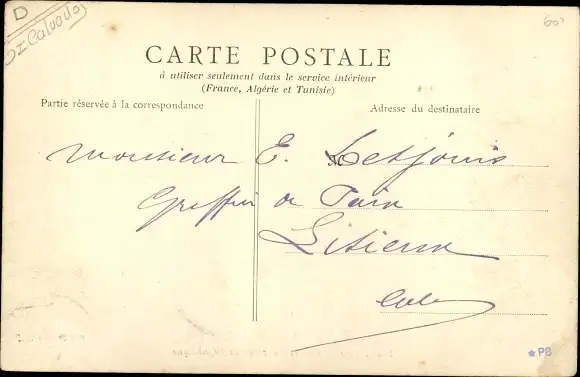 D
Calvados
60
CARTE POSTALE
à utiliser seulement dans le service intérieur
(France, Algérie et Tunisie)
Partie réservée à la correspondance
Adresse du destinataire
Monsieur E. Lesjouis
Greffier de Paix
Lisieux
Calv
★PB